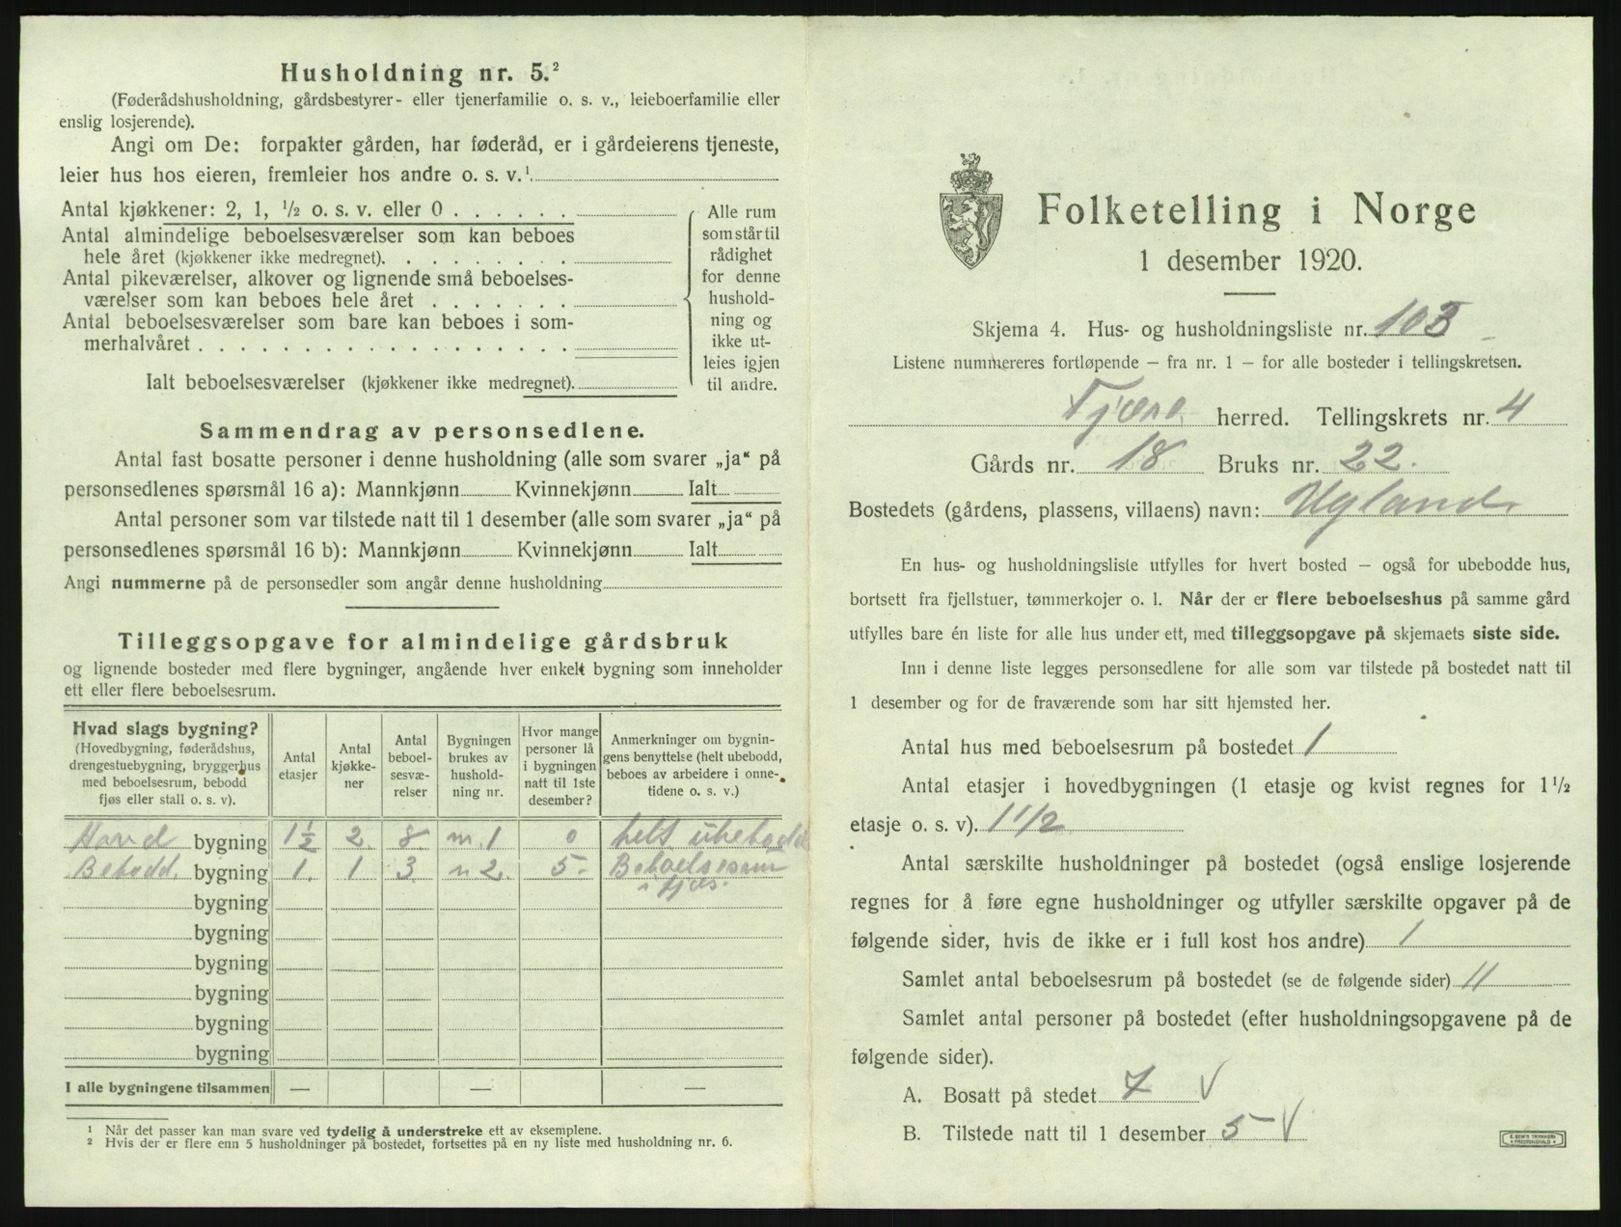 Husholdning nr. 5.²
(Føderådshusholdning, gårdsbestyrer- eller tjenerfamilie o. s. v., leieboerfamilie eller
enslig losjerende).
Angi om De: forpakter gården, har føderåd, er i gårdeierens tjeneste,
leier hus hos eieren, fremleier hos andre o. s. v.¹
Antal kjøkkener: 2, 1, ½ o. s. v. eller 0 . . . . . .
Antal almindelige beboelsesværelser som kan beboes
hele året (kjøkkener ikke medregnet). . . . . . . . .
Antal pikeværelser, alkover og lignende små beboelses-
værelser som kan beboes hele året . . . . . . .
Antal beboelsesværelser som bare kan beboes i som-
merhalvåret . . . . . . . . . . . . . . . . . .
Ialt beboelsesværelser (kjøkkener ikke medregnet).
Alle rum
som står til
rådighet
for denne
hushold-
ning og
ikke ut-
leies igjen
til andre.
Sammendrag av personsedlene.
Antal fast bosatte personer i denne husholdning (alle som svarer „ja“ på
personsedlenes spørsmål 16 a): Mannkjønn Kvinnekjønn Ialt
Antal personer som var tilstede natt til 1 desember (alle som svarer „ja“ på
personsedlenes spørsmål 16 b): Mannkjønn Kvinnekjønn Ialt
Angi nummerne på de personsedler som angår denne husholdning
Tilleggsopgave for almindelige gårdsbruk
og lignende bosteder med flere bygninger, angående hver enkelt bygning som inneholder
ett eller flere beboelsesrum.
Hvad slags bygning?
(Hovedbygning, føderådshus,
drengestuebygning, bryggerhus
med beboelsesrum, bebodd
fjøs eller stall o. s. v).
Antal
etasjer
Antal
kjøkke-
ner
Antal
beboel-
sesvæ-
relser
Bygningen
brukes av
hushold-
ning nr.
Hvor mange
personer lå
i bygningen
natt til 1ste
desember?
Anmerkninger om bygnin-
gens benyttelse (helt ubebodd,
beboes av arbeidere i onne-
tidene o. s. v.)
Hovd bygning 1½ 2. 8 n. 1 0 helt ubebodd
Bebodd. bygning 1. 1 3 n 2. 5- Beboelsesrum
i fjøs.
bygning
bygning
bygning
bygning
bygning
bygning
I alle bygningene tilsammen — — —
¹ Når det passer kan man svare ved tydelig å understreke ett av eksemplene.
² Hvis der er flere enn 5 husholdninger på bostedet, fortsettes på en ny liste med husholdning nr. 6.
Folketelling i Norge
1 desember 1920.
Skjema 4. Hus- og husholdningsliste nr. 103
Listene nummereres fortløpende – fra nr. 1 – for alle bosteder i tellingskretsen.
Fjære herred. Tellingskrets nr. 4
Gårds nr. 18 Bruks nr. 22.
Bostedets (gårdens, plassens, villaens) navn: Ugland
En hus- og husholdningsliste utfylles for hvert bosted – også for ubebodde hus,
bortsett fra fjellstuer, tømmerkojer o. l. Når der er flere beboelseshus på samme gård
utfylles bare én liste for alle hus under ett, med tilleggsopgave på skjemaets siste side.
Inn i denne liste legges personsedlene for alle som var tilstede på bostedet natt til
1 desember og for de fraværende som har sitt hjemsted her.
Antal hus med beboelsesrum på bostedet 1
Antal etasjer i hovedbygningen (1 etasje og kvist regnes for 1½
etasje o. s. v). 1 1/2
Antal særskilte husholdninger på bostedet (også enslige losjerende
regnes for å føre egne husholdninger og utfyller særskilte opgaver på de
følgende sider, hvis de ikke er i full kost hos andre) 1
Samlet antal beboelsesrum på bostedet (se de følgende sider) 11
Samlet antal personer på bostedet (efter husholdningsopgavene på de
følgende sider).
A. Bosatt på stedet 7 V
B. Tilstede natt til 1 desember 5 V